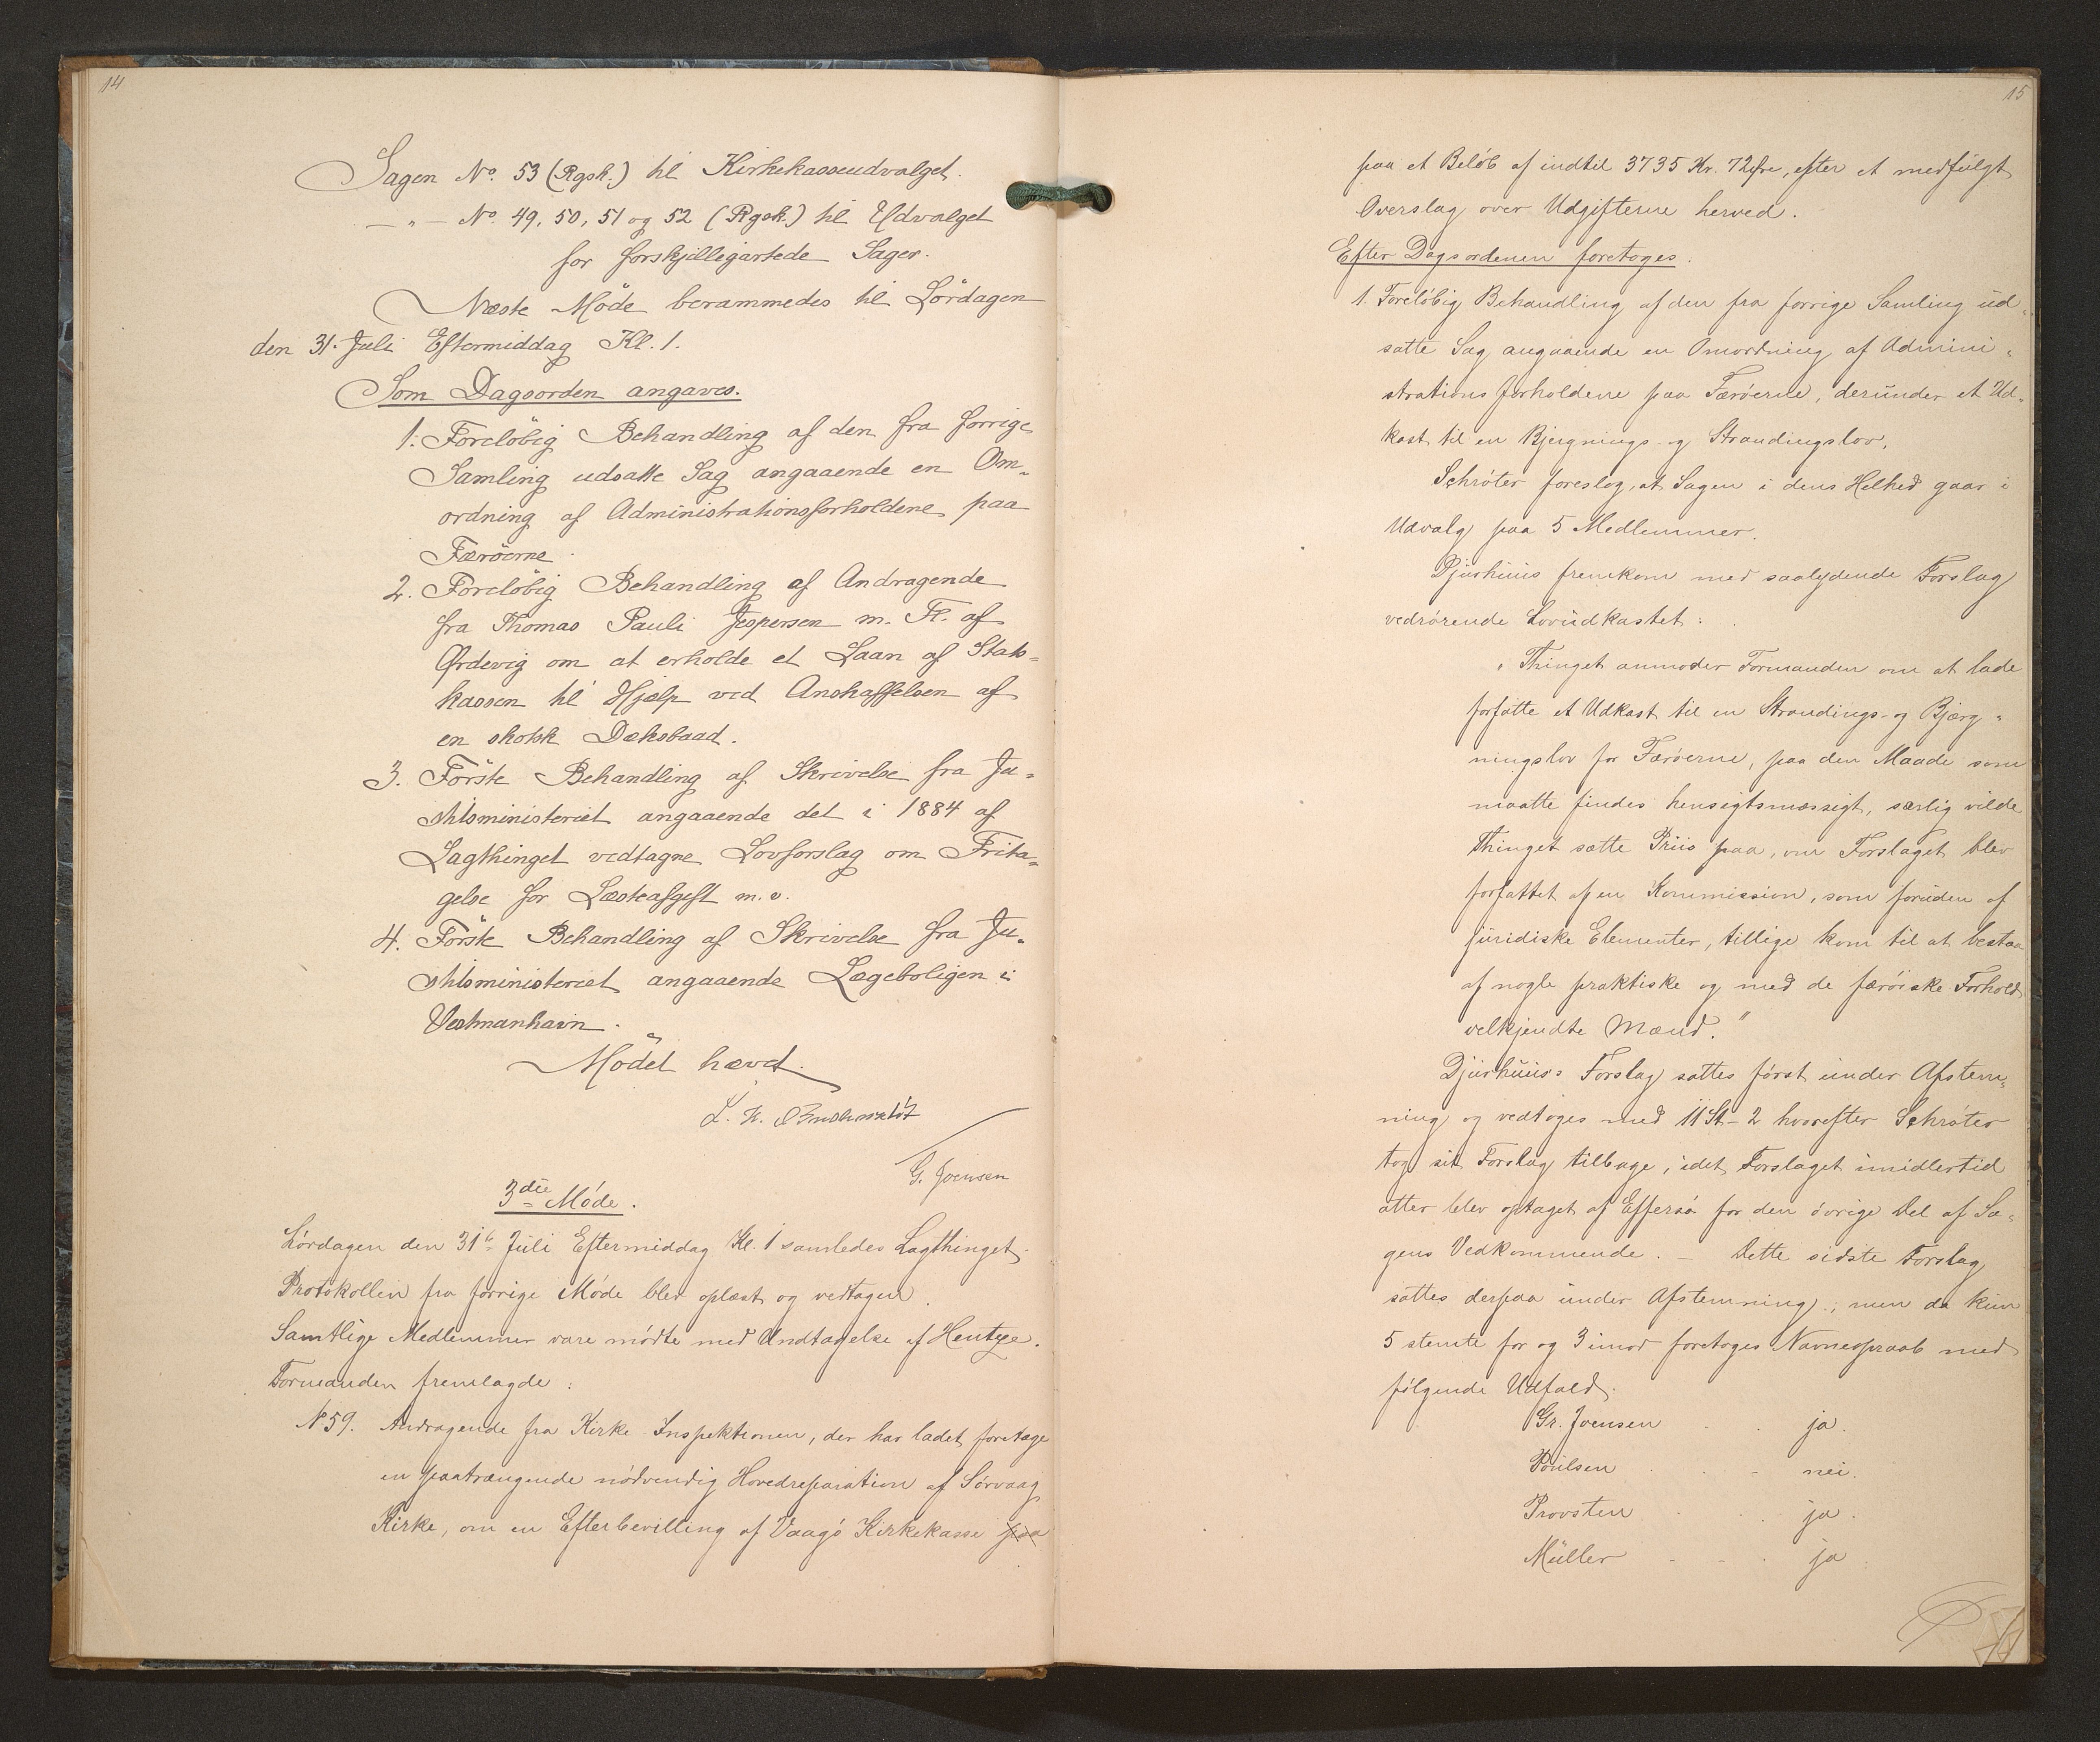 14
Sagen No. 53 (Rgsk.) til Kirkekasseudvalget.
— " — No. 49, 50, 51 og 52 (Rgsk.) til Udvalget
for forskjelligartede Sager.
Næste Möde berammedes til Lördagen
den 31. Juli Eftermiddag Kl. 1.
Som Dagsorden angaves.
1. Foreløbig Behandling af den fra forrige
Samling udsatte Sag angaaende en Om-
ordning af Administrationsforholdene paa
Færöerne.
2. Foreløbig Behandling af Andragende
fra Thomas Pauli Jespersen m. Fl. af
Ørdevig om at erholde et Laan af Stats-
kassen til Hjælp ved Anskaffelsen af
en skotsk Dæksbaad.
3. Förste Behandling af Skrivelse fra Ju-
stitsministeriet angaaende det i 1884 af
Lagthinget vedtagne Lovforslag om Frita-
gelse for Læsteafgift m.v.
4. Förste Behandling af Skrivelse fra Ju-
stitsministeriet angaaende Lægeboligen i
Vestmanhavn.
Mödet hævet.
G. Joensen
3die Móde.
Lórdagen den 31te Júli Eftermiddag Kl. 1 samledes Lagthinget.
Protokollen fra forrige Móde blev oplæst og vedtagen.
Samtlige Medlemmer vare módte med Undtagelse af Hentze.
Formanden fremlagde:
No 59. Andragende fra Kirke Inspektionen, der har ladet foretage
en paatrængende nódvendig Hovedreparation af Sórvaag
Kirke, om en Efterbevilling af Vaagó Kirkekasse paa
15
paa et Belób af indtil 3735 Kr. 72 Øre, efter et medfúlgt
Overslag over Udgifterne herved.
Efter Dagsordenen foretoges.
1. Forelóbig Behandling af den fra forrige Samling úd-
satte Sag angaaende en Omordning af Admini-
strationsforholdene paa Færóerne, derúnder et Ud-
kast til en Bjergnings- og Strandingslov.
Schróter foreslog, at Sagen i dens Helhed gaar i
Udvalg paa 5 Medlemmer.
Djurhúús fremkom med saalydende Forslag
vedrórende Lovúdkastet:
"Thinget anmoder Formanden om at lade
forfatte et Udkast til en Strandings- og Bjærg-
ningslov for Færóerne, paa den Maade som
maatte findes hensigtsmæssigt, særlig vilde
Thinget sætte Priis paa, om Forslaget blev
forfattet af en Kommission, som foruden af
júridiske Elementer, tillige kom til at bestaa
af nogle praktiske og med de færóiske Forhold
velkjendte Mænd."
Djúrhúús's Forslag sattes fórst únder Afstem-
ning og vedtoges med 11 St – 2 hvorefter Schróter
tog sit Forslag tilbage, idet Forslaget imidlertid
atter blev optaget af Effersó for den óvrige Del af Sa-
gens Vedkommende. – Dette sidste Forslag
sattes derpaa únder Afstemning; men da kún
5 stemte for og 3 imod foretoges Navneopraab med
fólgende Udfald.
Gr. Joensen . . ja.
Poúlsen . . - nei.
Provsten . . ja.
Múller - - . ja.